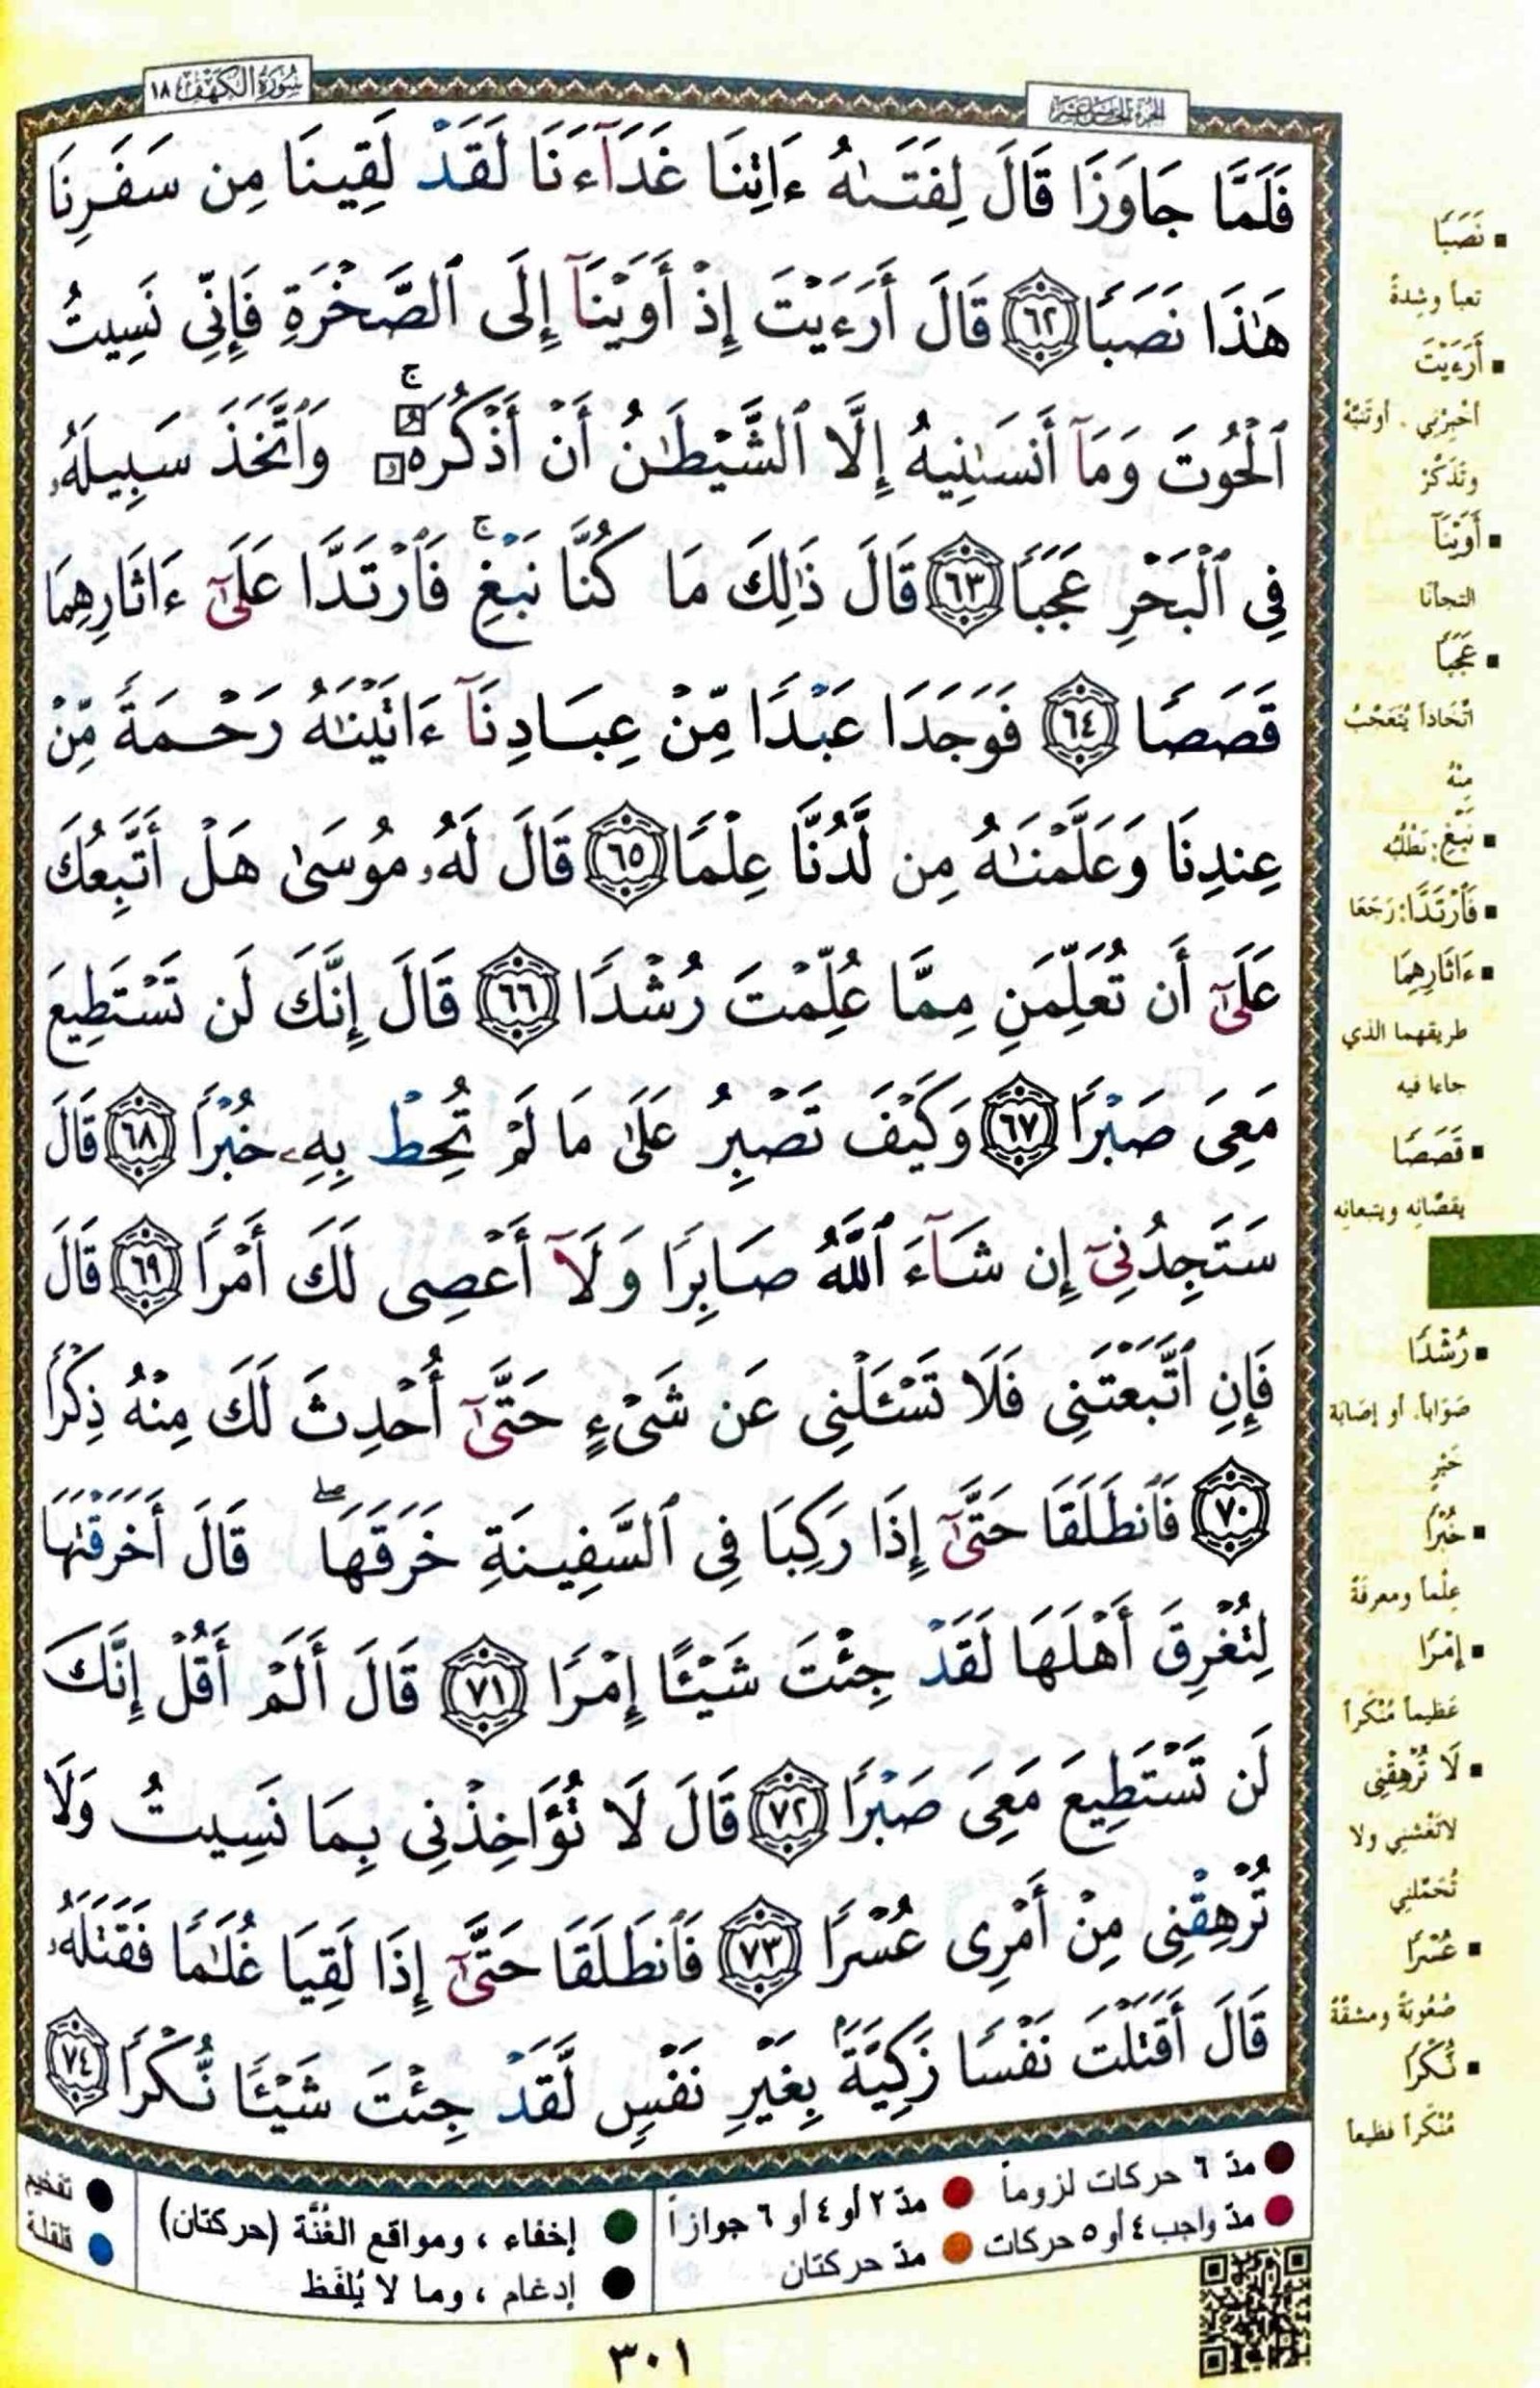 سُورَةُ الكَهْفِ ١٨
الجُزءُ الخَامِسَ عَشَرَ
فَلَمَّا جَاوَزَا قَالَ لِفَتَىٰهُ ءَاتِنَا غَدَآءَنَا لَقَدْ لَقِينَا مِن سَفَرِنَا
هَٰذَا نَصَبًا ٦٢ قَالَ أَرَءَيْتَ إِذْ أَوَيْنَآ إِلَى ٱلصَّخْرَةِ فَإِنِّى نَسِيتُ
ٱلْحُوتَ وَمَآ أَنسَىٰنِيهُ إِلَّا ٱلشَّيْطَٰنُ أَنْ أَذْكُرَهُۥ ۚ وَٱتَّخَذَ سَبِيلَهُۥ
فِى ٱلْبَحْرِ عَجَبًا ٦٣ قَالَ ذَٰلِكَ مَا كُنَّا نَبْغِ ۚ فَٱرْتَدَّا عَلَىٰٓ ءَاثَارِهِمَا
قَصَصًا ٦٤ فَوَجَدَا عَبْدًا مِّنْ عِبَادِنَآ ءَاتَيْنَٰهُ رَحْمَةً مِّنْ
عِندِنَا وَعَلَّمْنَٰهُ مِن لَّدُنَّا عِلْمًا ٦٥ قَالَ لَهُۥ مُوسَىٰ هَلْ أَتَّبِعُكَ
عَلَىٰٓ أَن تُعَلِّمَنِ مِمَّا عُلِّمْتَ رُشْدًا ٦٦ قَالَ إِنَّكَ لَن تَسْتَطِيعَ
مَعِىَ صَبْرًا ٦٧ وَكَيْفَ تَصْبِرُ عَلَىٰ مَا لَمْ تُحِطْ بِهِۦ خُبْرًا ٦٨ قَالَ
سَتَجِدُنِىٓ إِن شَآءَ ٱللَّهُ صَابِرًا وَلَآ أَعْصِى لَكَ أَمْرًا ٦٩ قَالَ
فَإِنِ ٱتَّبَعْتَنِى فَلَا تَسْـَٔلْنِى عَن شَىْءٍ حَتَّىٰٓ أُحْدِثَ لَكَ مِنْهُ ذِكْرًا
٧٠ فَٱنطَلَقَا حَتَّىٰٓ إِذَا رَكِبَا فِى ٱلسَّفِينَةِ خَرَقَهَا ۖ قَالَ أَخَرَقْتَهَا
لِتُغْرِقَ أَهْلَهَا لَقَدْ جِئْتَ شَيْـًٔا إِمْرًا ٧١ قَالَ أَلَمْ أَقُلْ إِنَّكَ
لَن تَسْتَطِيعَ مَعِىَ صَبْرًا ٧٢ قَالَ لَا تُؤَاخِذْنِى بِمَا نَسِيتُ وَلَا
تُرْهِقْنِى مِنْ أَمْرِى عُسْرًا ٧٣ فَٱنطَلَقَا حَتَّىٰٓ إِذَا لَقِيَا غُلَٰمًا فَقَتَلَهُۥ
قَالَ أَقَتَلْتَ نَفْسًا زَكِيَّةًۢ بِغَيْرِ نَفْسٍ لَّقَدْ جِئْتَ شَيْـًٔا نُّكْرًا ٧٤
▪ نَصَبًا
تعباً وشِدةً
▪ أَرَءَيْتَ
أخْبِرْني . أو تَنَبَّهْ
وتَذَكَّرْ
▪ أَوَيْنَآ
التجأنا
▪ عَجَبًا
اتّخاذاً يُتَعَجَّبُ
مِنْهُ
▪ نَبْغِ: نَطْلُبُه
▪ فَٱرْتَدَّا: رَجَعَا
▪ ءَاثَارِهِمَا
طريقهما الذي
جاءا فيه
▪ قَصَصًا
يقصّانِه ويتبعانِه
▪ رُشْدًا
صَوَاباً. أو إصَابَة
خَيْرٍ
▪ خُبْرًا
عِلْماً ومعرفَةً
▪ إِمْرًا
عَظيماً مُنْكَراً
▪ لَا تُرْهِقْنِى
لاتَغْشني ولا
تُحَمّلني
▪ عُسْرًا
صُعُوبَةً ومشقَّةً
▪ نُكْرًا
مُنْكَراً فظيعاً
مدّ ٦ حركات لزوماً
مدّ ٢ أو ٤ أو ٦ جوازاً
إخفاء ، ومواقع الغُنَّة (حركتان)
تفخيم
مدّ واجب ٤ أو ٥ حركات
مدّ حركتان
إدغام ، وما لا يُلفَظ
قلقلة
٣٠١